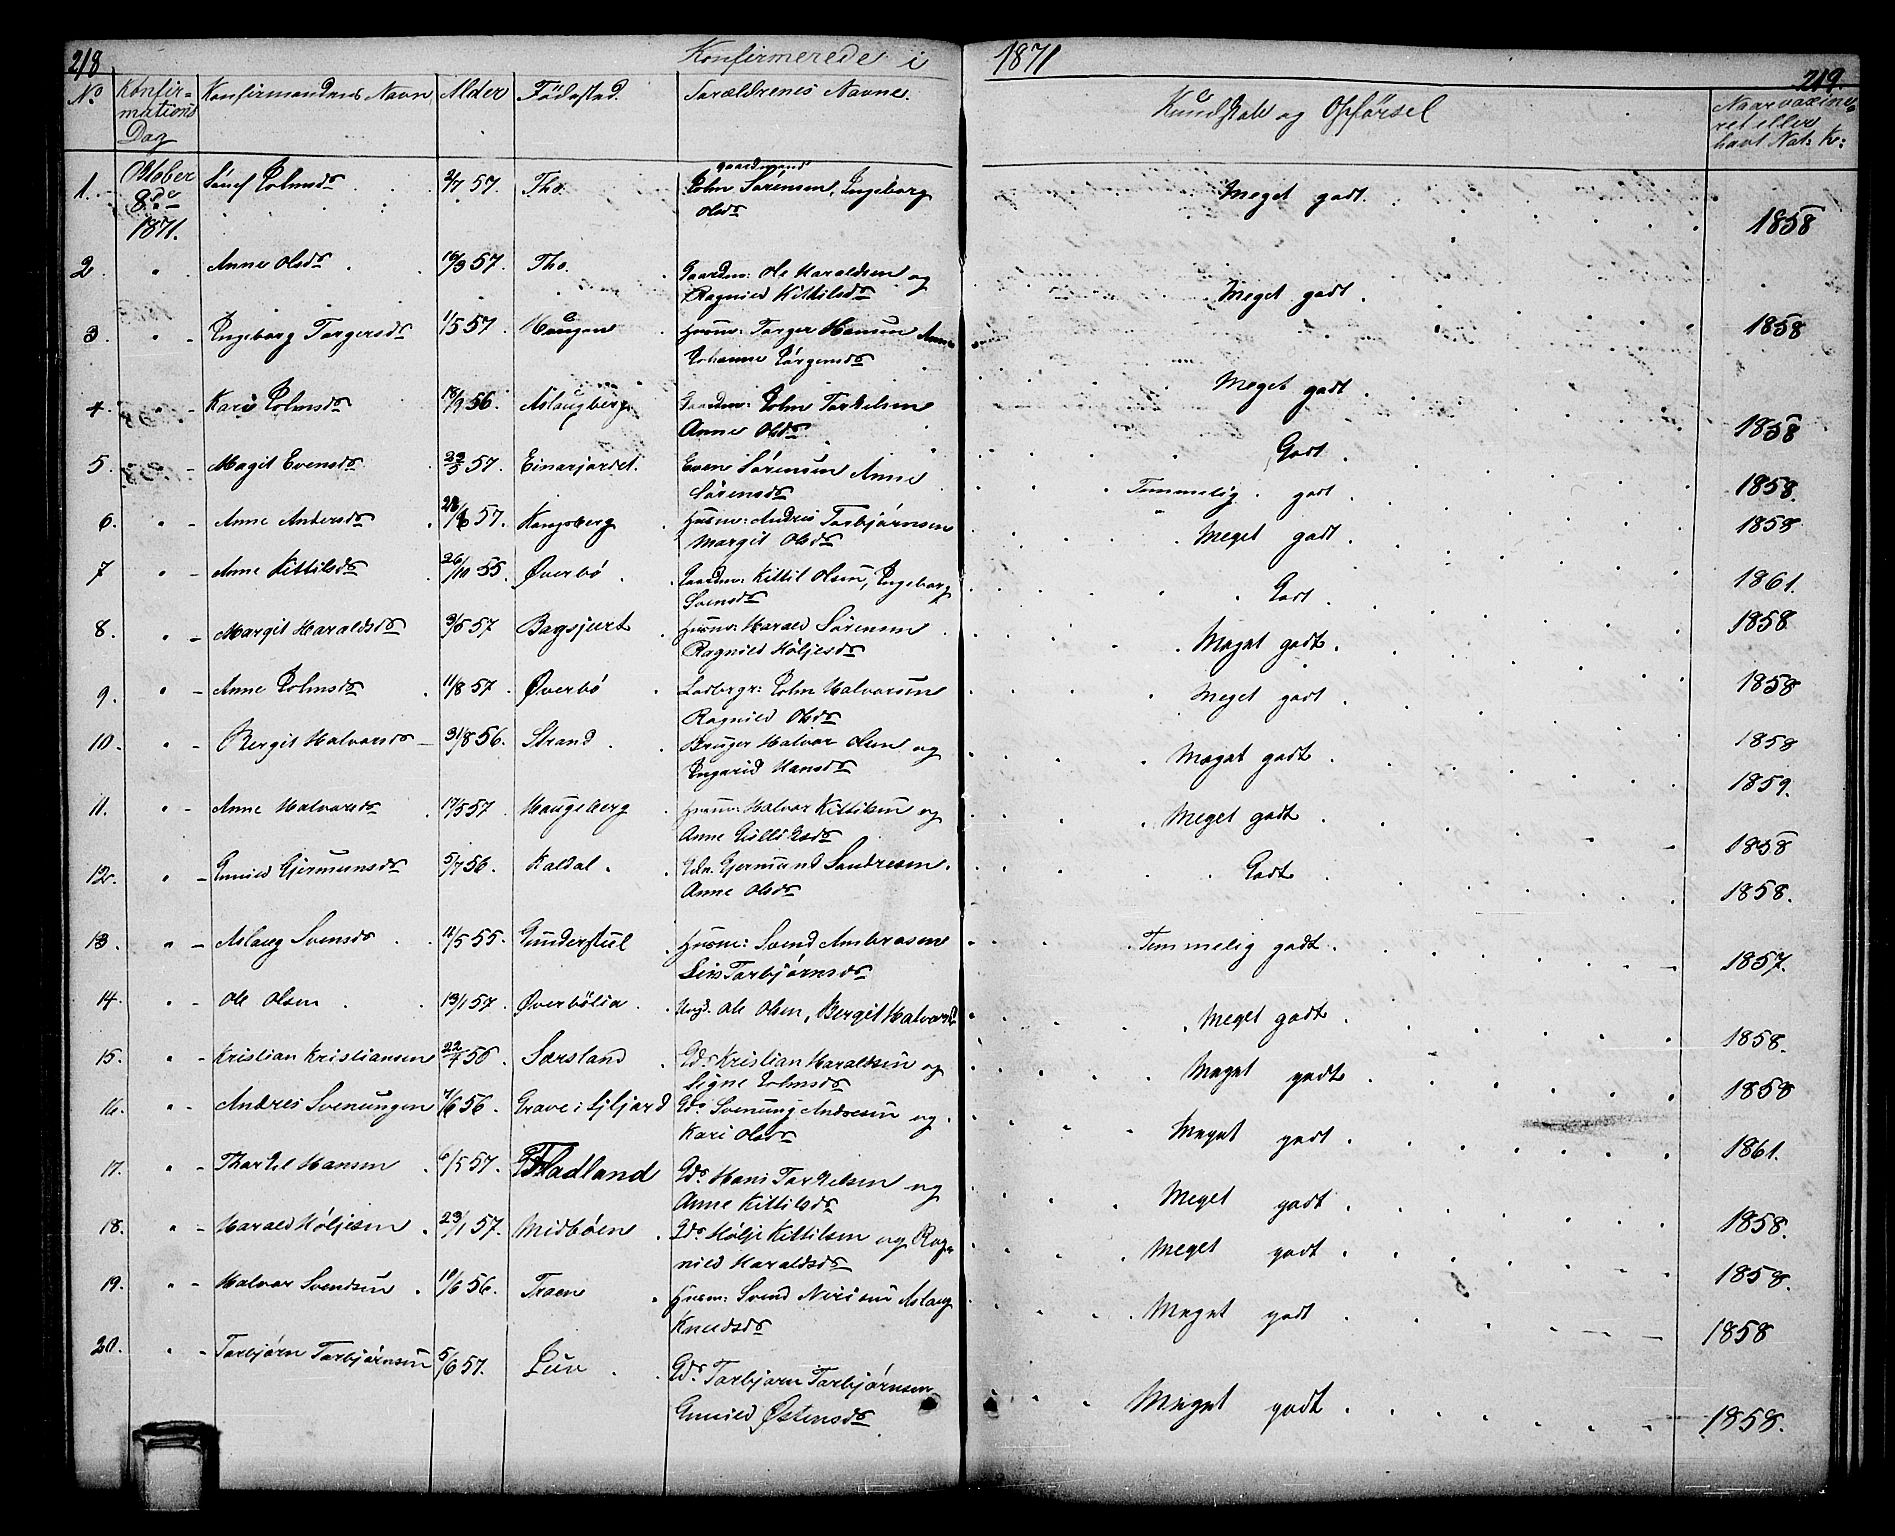 218 Konfirmerede i 1871 219.
No Konfirmations Dag Konfirmandens Navn Alder Födested Forældrenes Navne. Kundskab og Opförsel Naar vaxineret eller havt Nat: K:
1. Oktober 8de 1871. Johnsdr 2/7 57. Tho. gaardmand John Sörensen, Ingeborg Olsdr Meget godt. 1858
2. " Anne Olsdr 16/3 57. Tho. Gaardm: Ole Haraldsen og Ragnild Kittilsdr Meget godt. 1858
3. " Ingeborg Torgersdr 1/5 57. Haugen Husm: Torger Hansen Anne Johanne Jörgensdr Meget godt. 1858
4. " Kari Johnsdr 18/9 56. Aslaugberg Gaardm: John Torkelsen Anne Olsdr Godt. 1858
5. " Margit Evensdr 29/5 57. Einarjordet. Even Sörensen Anne Sörensdr Temmelig godt. 1858.
6. " Anne Andersdr 57. Kongsberg Husm: Andris Torbjørnsen Margit Olsdr Meget godt. 1858
7 " Anne Kittilsdr 26/10 55. Øverbö Gaardm: Kittil Olsen, Ingeborg Svensdr Godt. 1861.
8. " Margit Haraldsdr 3/5 57 Bagsjuvt Husm: Harald Sörensen Ragnild Höljesdr Meget godt. 1858
9. " Anne Johnsdr 11/8 57. Øverbö Ladbergr: John Halvorsen Ragnild Olsdr Meget godt. 1858
10. " Bergit Halvorsdr 31/8 56. Strand. Bruger Halvor Olsen og Ingerid Hansdr Meget godt. 1858
11. " Anne Halvorsdr 17/5 57. Haugeberg Husm: Halvor Kittilsen og Anne Meget godt. 1859.
12. " Gunild Gjermunsdr 5/7 56. Kaldal. Gjermund Sondresen. Anne Olsdr Godt. 1858
13. " Aslaug Svensdr 4/5 55. Gunderstul Husm: Svend Ambrosen Liv Torbjørnsdr Temmelig godt. 1858.
14. " Ole Olsen 13/1 57. Øverbölia Ole Olsen, Bergit Halvorsdr Meget godt. 1857.
15. " Kristian Kristiansen 22/7 56. Sørsland Gdr Kristian Haraldsen og Signe Johnsdr Meget godt. 1858.
16. " Andres Svenungen 7/6 56. Grave i Liljord Gdr Svenung Andresen og Kari Olsdr Meget godt. 1858
17. " Thorkil Hansen 6/5 57. Fladland Gdr Hans Torkelsen og Anne Kittilsdr Meget godt. 1861.
18. " Harald Höljesen 23/1 57. Midböen Gdr Hölje Kittilsen og Ragnild Haraldsdr Meget godt. 1858.
19. " Halvor Svendsen 10/6 56. Traen Husm: Svend Nirisen Aslaug Knudsdr Meget godt. 1858.
20. " Torbjørn Torbjørnsen 5/6 57. Lun Gdr Torbjørn Torbjørnsen Gunild Østensdr Meget godt. 1858
1858.